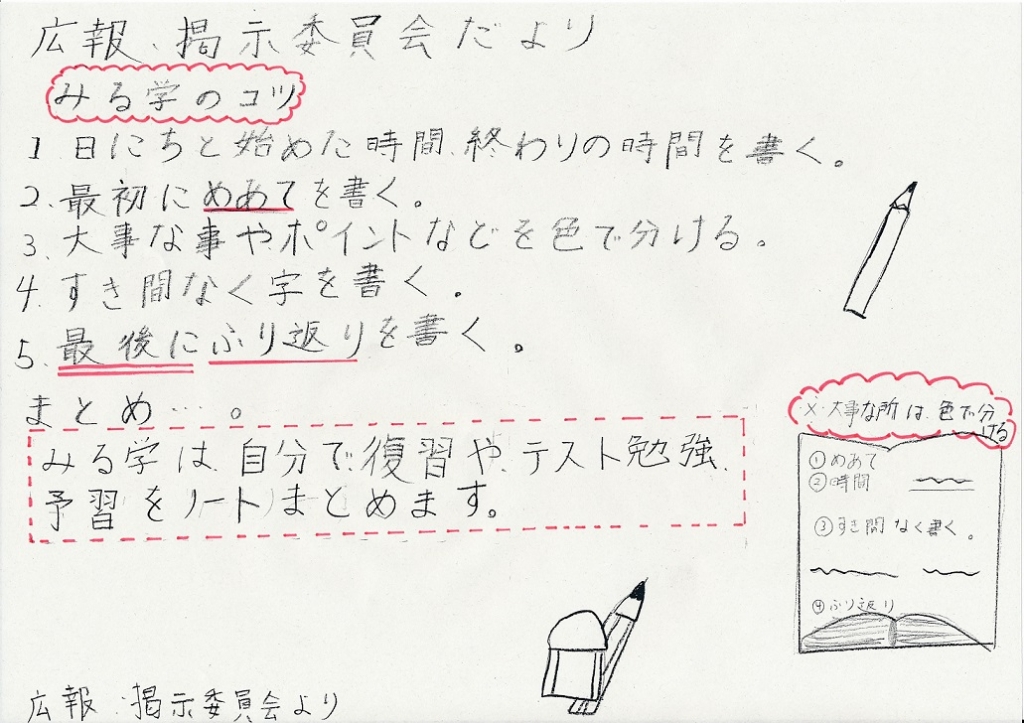 広報、掲示委員会だより
みる学のコツ
1.日にちと始めた時間、終わりの時間を書く。
2.最初にめあてを書く。
3.大事な事やポイントなどを色で分ける。
4.すき間なく字を書く。
5.最後にふり返りを書く。
まとめ…。
みる学は、自分で、復習や、テスト勉強、
予習をノートまとめます。
※大事な所は、色で分
ける
①めあて
②時間
③すき間なく書く。
④ふり返り
広報、掲示委員会より